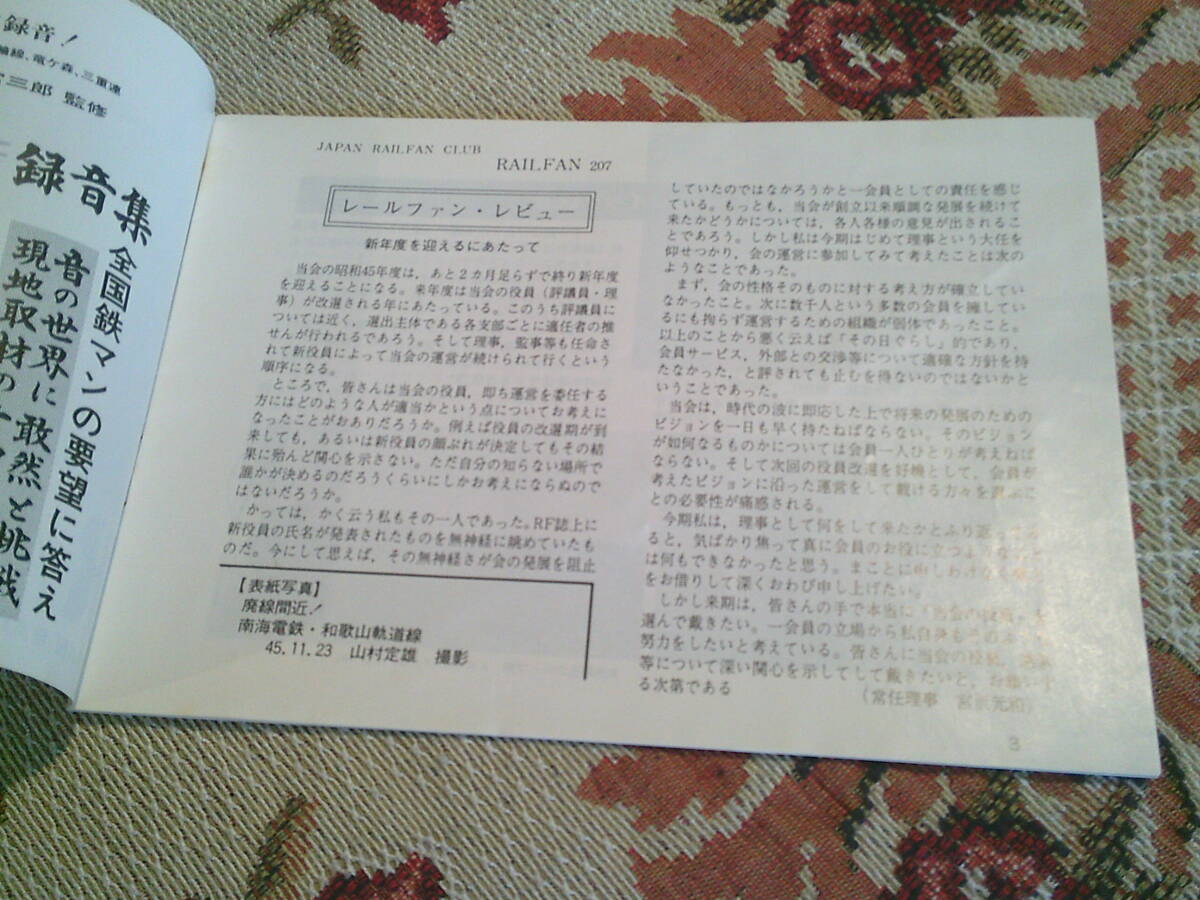 録音!
線、竜ケ森、三重連
三郎 監修
録音集
全国鉄マンの要望に答え
音の世界に敢然と挑戦
現地取材の
JAPAN RAILFAN CLUB
RAILFAN 207
レールファン・レビュー
新年度を迎えるにあたって
当会の昭和45年度は，あと2カ月足らずで終り新年度
を迎えることになる。来年度は当会の役員（評議員・理
事）が改選される年にあたっている。このうち評議員に
ついては近く，選出主体である各支部ごとに適任者の推
せんが行われるであろう。そして理事，監事等も任命さ
れて新役員によって当会の運営が続けられて行くという
順序になる。
ところで，皆さんは当会の役員，即ち運営を委任する
方にはどのような人が適当かという点についてお考えに
なったことがおありだろうか。例えば役員の改選期が到
来しても，あるいは新役員の顔ぶれが決定してもその結
果に殆んど関心を示さない。ただ自分の知らない場所で
誰かが決めるのだろうくらいにしかお考えにならぬので
はないだろうか。
かっては，かく云う私もその一人であった。RF誌上に
新役員の氏名が発表されたものを無神経に眺めていたも
のだ。今にして思えば，その無神経さが会の発展を阻止
【表紙写真】
廃線間近！
南海電鉄・和歌山軌道線
45.11.23 山村定雄 撮影
していたのではなかろうかと一会員としての責任を感じ
ている。もっとも，当会が創立以来順調な発展を続けて
来たかどうかについては，各人各様の意見が出されるこ
とであろう。しかし私は今期はじめて理事という大任を
仰せつかり，会の運営に参加してみて考えたことは次の
ようなことであった。
まず，会の性格そのものに対する考え方が確立してい
なかったこと。次に数千人という多数の会員を擁してい
るにも拘らず運営するための組織が弱体であったこと。
以上のことから悪く云えば「その日ぐらし」的であり，
会員サービス，外部との交渉等について適確な方針を持
たなかった，と評されても止むを得ないのではないかと
いうことであった。
当会は，時代の波に即応した上で将来の発展のための
ビジョンを一日も早く持たねばならない。そのビジョン
が如何なるものかについては会員一人ひとりが考えねば
ならない。そして次回の役員改選を好機として，会員が
考えたビジョンに沿った運営をして戴ける方々を選ぶこ
との必要性が痛感される。
今期私は，理事として何をして来たかとふり返って
ると，気ばかり焦って真に会員のお役に立つような
は何もできなかったと思う。まことに申しわけなく
をお借りして深くおわび申し上げたい。
しかし来期は，皆さんの手で本当に「当会の
選んで戴きたい。一会員の立場から私自身も
努力をしたいと考えている。皆さんに当会の役員，
等について深い関心を示してして戴きたいと，お願いす
る次第である
（常任理事
3